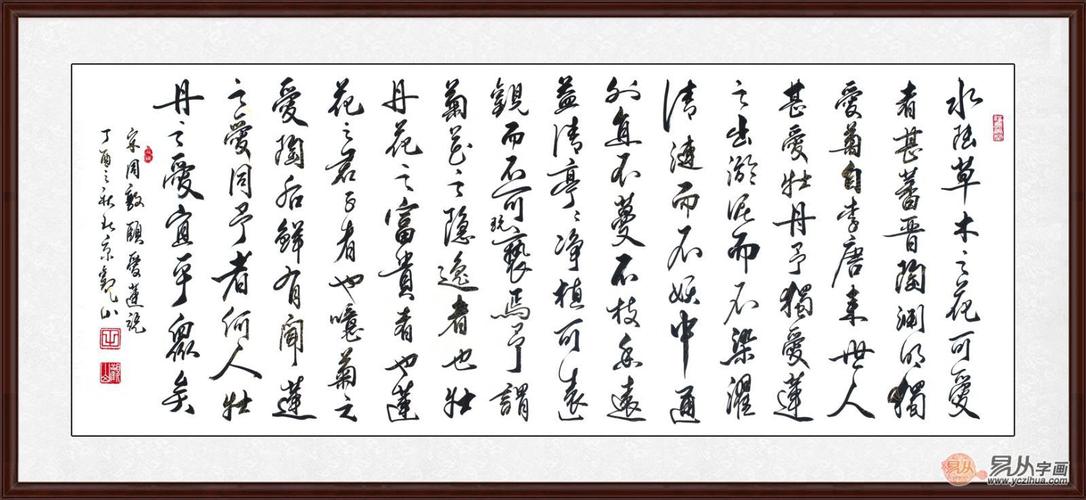 水陸草木之花可愛
者甚蕃晋陶渊明獨
愛菊自李唐来世人
甚愛牡丹予獨愛蓮
之出淤泥而不染濯
清漣而不妖中通
外直不蔓不枝香遠
益清亭亭净植可遠
觀而不可玩褻焉予謂
菊花之隱逸者也牡
丹花之富貴者也蓮
花之君子者也噫菊之
愛陶后鮮有聞蓮
之愛同予者何人牡
丹之愛宜乎衆矣
宋周敦頤愛蓮説
丁酉之秋於京觀山
易从字画
www.yczihua.com